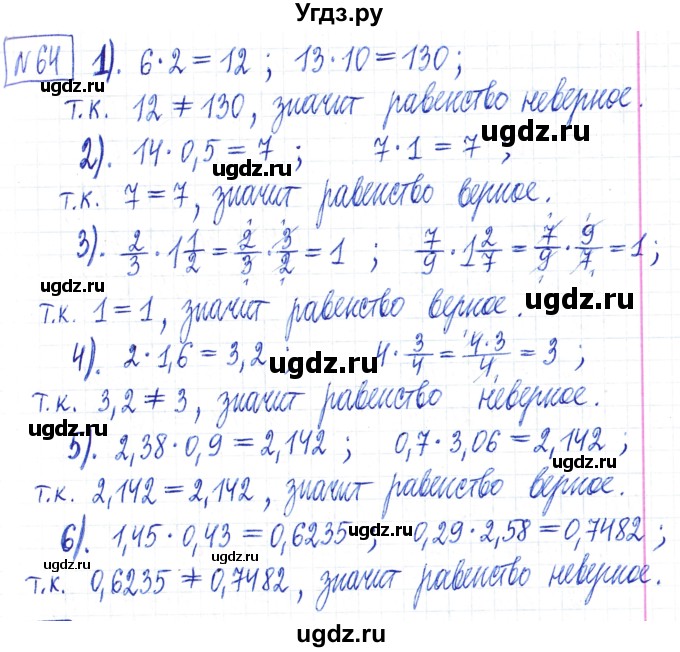 Угдз.ру
№64 1). 6·2=12; 13·10=130;
т.к. 12≠130, значит равенство неверное.
2). 14·0,5=7; 7·1=7;
т.к. 7=7, значит равенство верное.
3). 2/3·1 1/2=2/3·3/2=1; 7/9·1 2/7=7/9·9/7=1;
т.к. 1=1, значит равенство верное.
4). 2·1,6=3,2; 4·3/4=4·3/4=3;
т.к. 3,2≠3, значит равенство неверное.
5). 2,38·0,9=2,142; 0,7·3,06=2,142;
т.к. 2,142=2,142, значит равенство верное.
6). 1,45·0,43=0,6235; 0,29·2,58=0,7482;
т.к. 0,6235≠0,7482, значит равенство неверное.
ugdz.ru
ugdz.ru
ugdz.ru
ugdz.ru
ugdz.ru
ugdz.ru
ugdz.ru
ugdz.ru
ugdz.ru
ugdz.ru
ugdz.ru
ugdz.ru
ugdz.ru
ugdz.ru